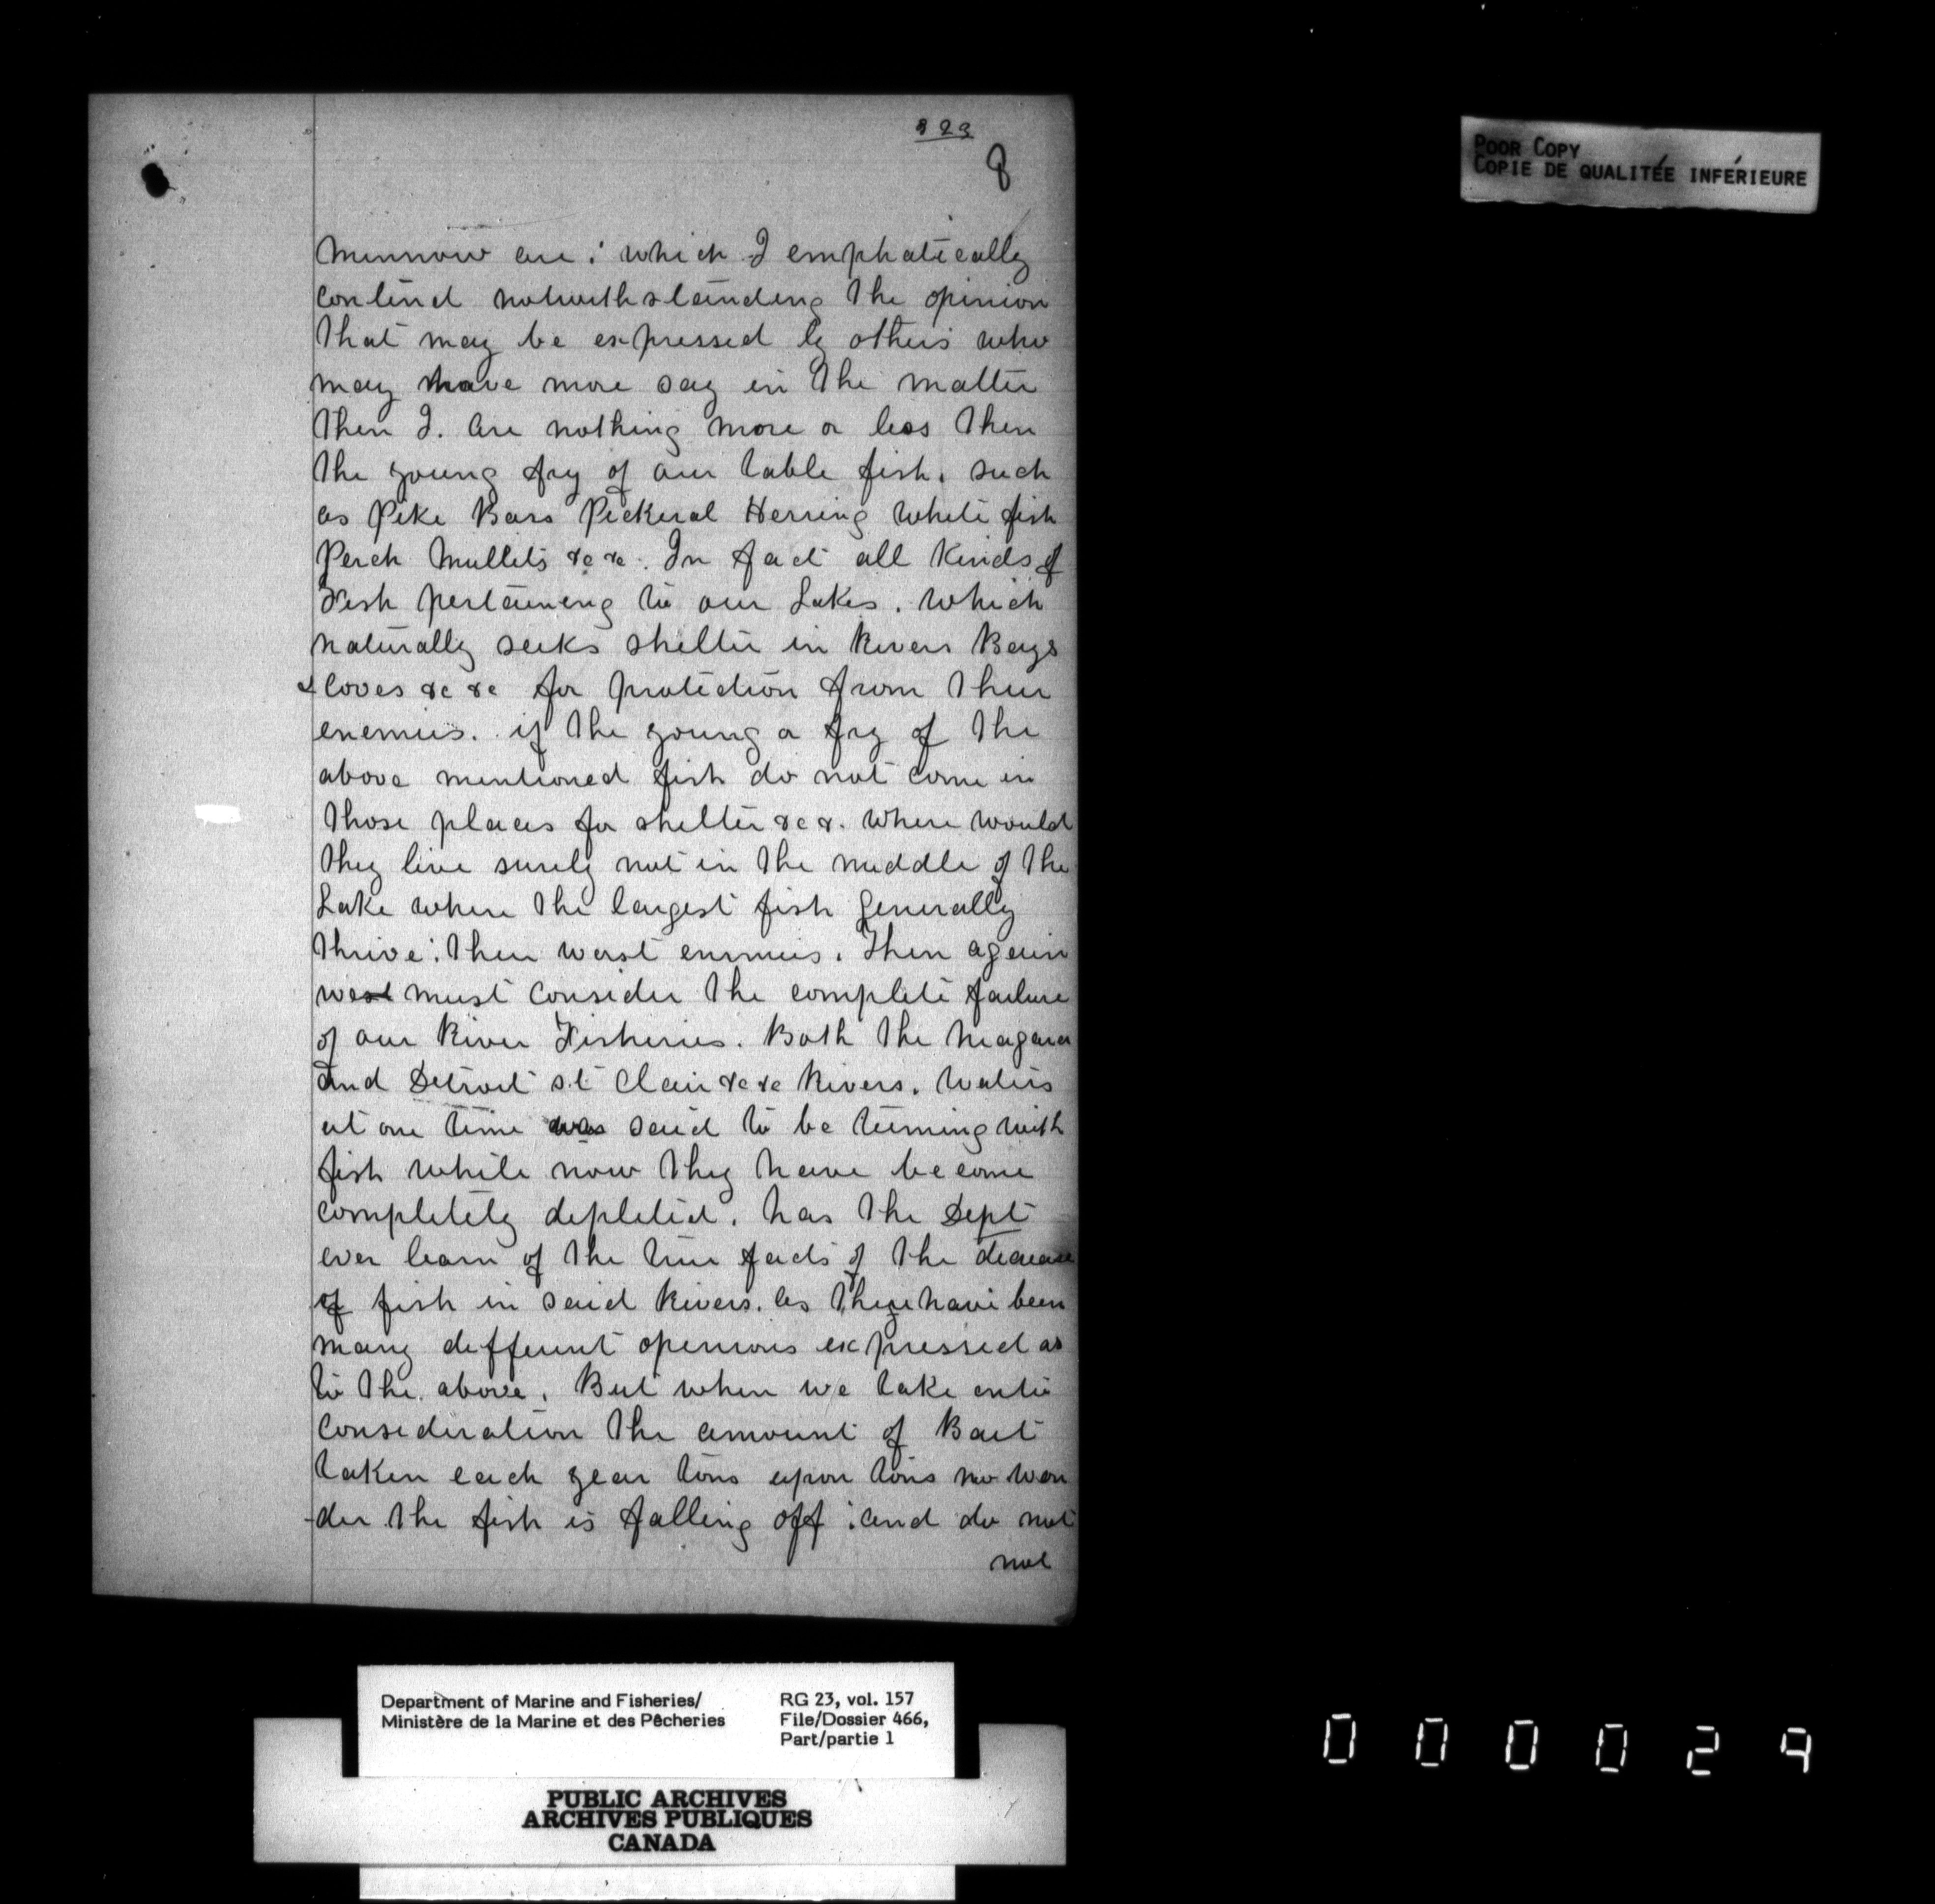 823
8
POOR COPY
COPIE DE QUALITÉE INFÉRIEURE
Minnow are: which I emphatically
contend notwithstanding the opinion
that may be expressed by others who
may have more say in the matter
then I. are nothing more or less then
the young fry of our table fish. such
as Pike Bass Pickeral Herring white fish
Perch Mullets &c &c. In fact all Kinds of
Fish pertaining to our Lakes. which
naturally seeks shelter in Rivers Bays
& Coves &c &c for protection from their
enemies. if the young or fry of the
above mentioned fish do not come in
those places for shelter &c &. where would
they live surely not in the middle of the
Lake where the largest fish generally
thrive: their worst enemies. Then again
we must consider the complete failure
of our River Fisheries. Both the Niagara
and Detroit St Clair &c &c Rivers. waters
at one time was said to be teeming with
fish while now they have become
completely depleted. has the Dept
ever learn of the true facts of the decrease
of fish in said Rivers. as there have been
many different openions expressed as
to the above. But when we take into
consideration the amount of Bait
taken each year tons upon tons no won
-der the fish is falling off: and do not
not
Department of Marine and Fisheries/
Ministère de la Marine et des Pêcheries
RG 23, vol. 157
File/Dossier 466,
Part/partie 1
PUBLIC ARCHIVES
ARCHIVES PUBLIQUES
CANADA
000029